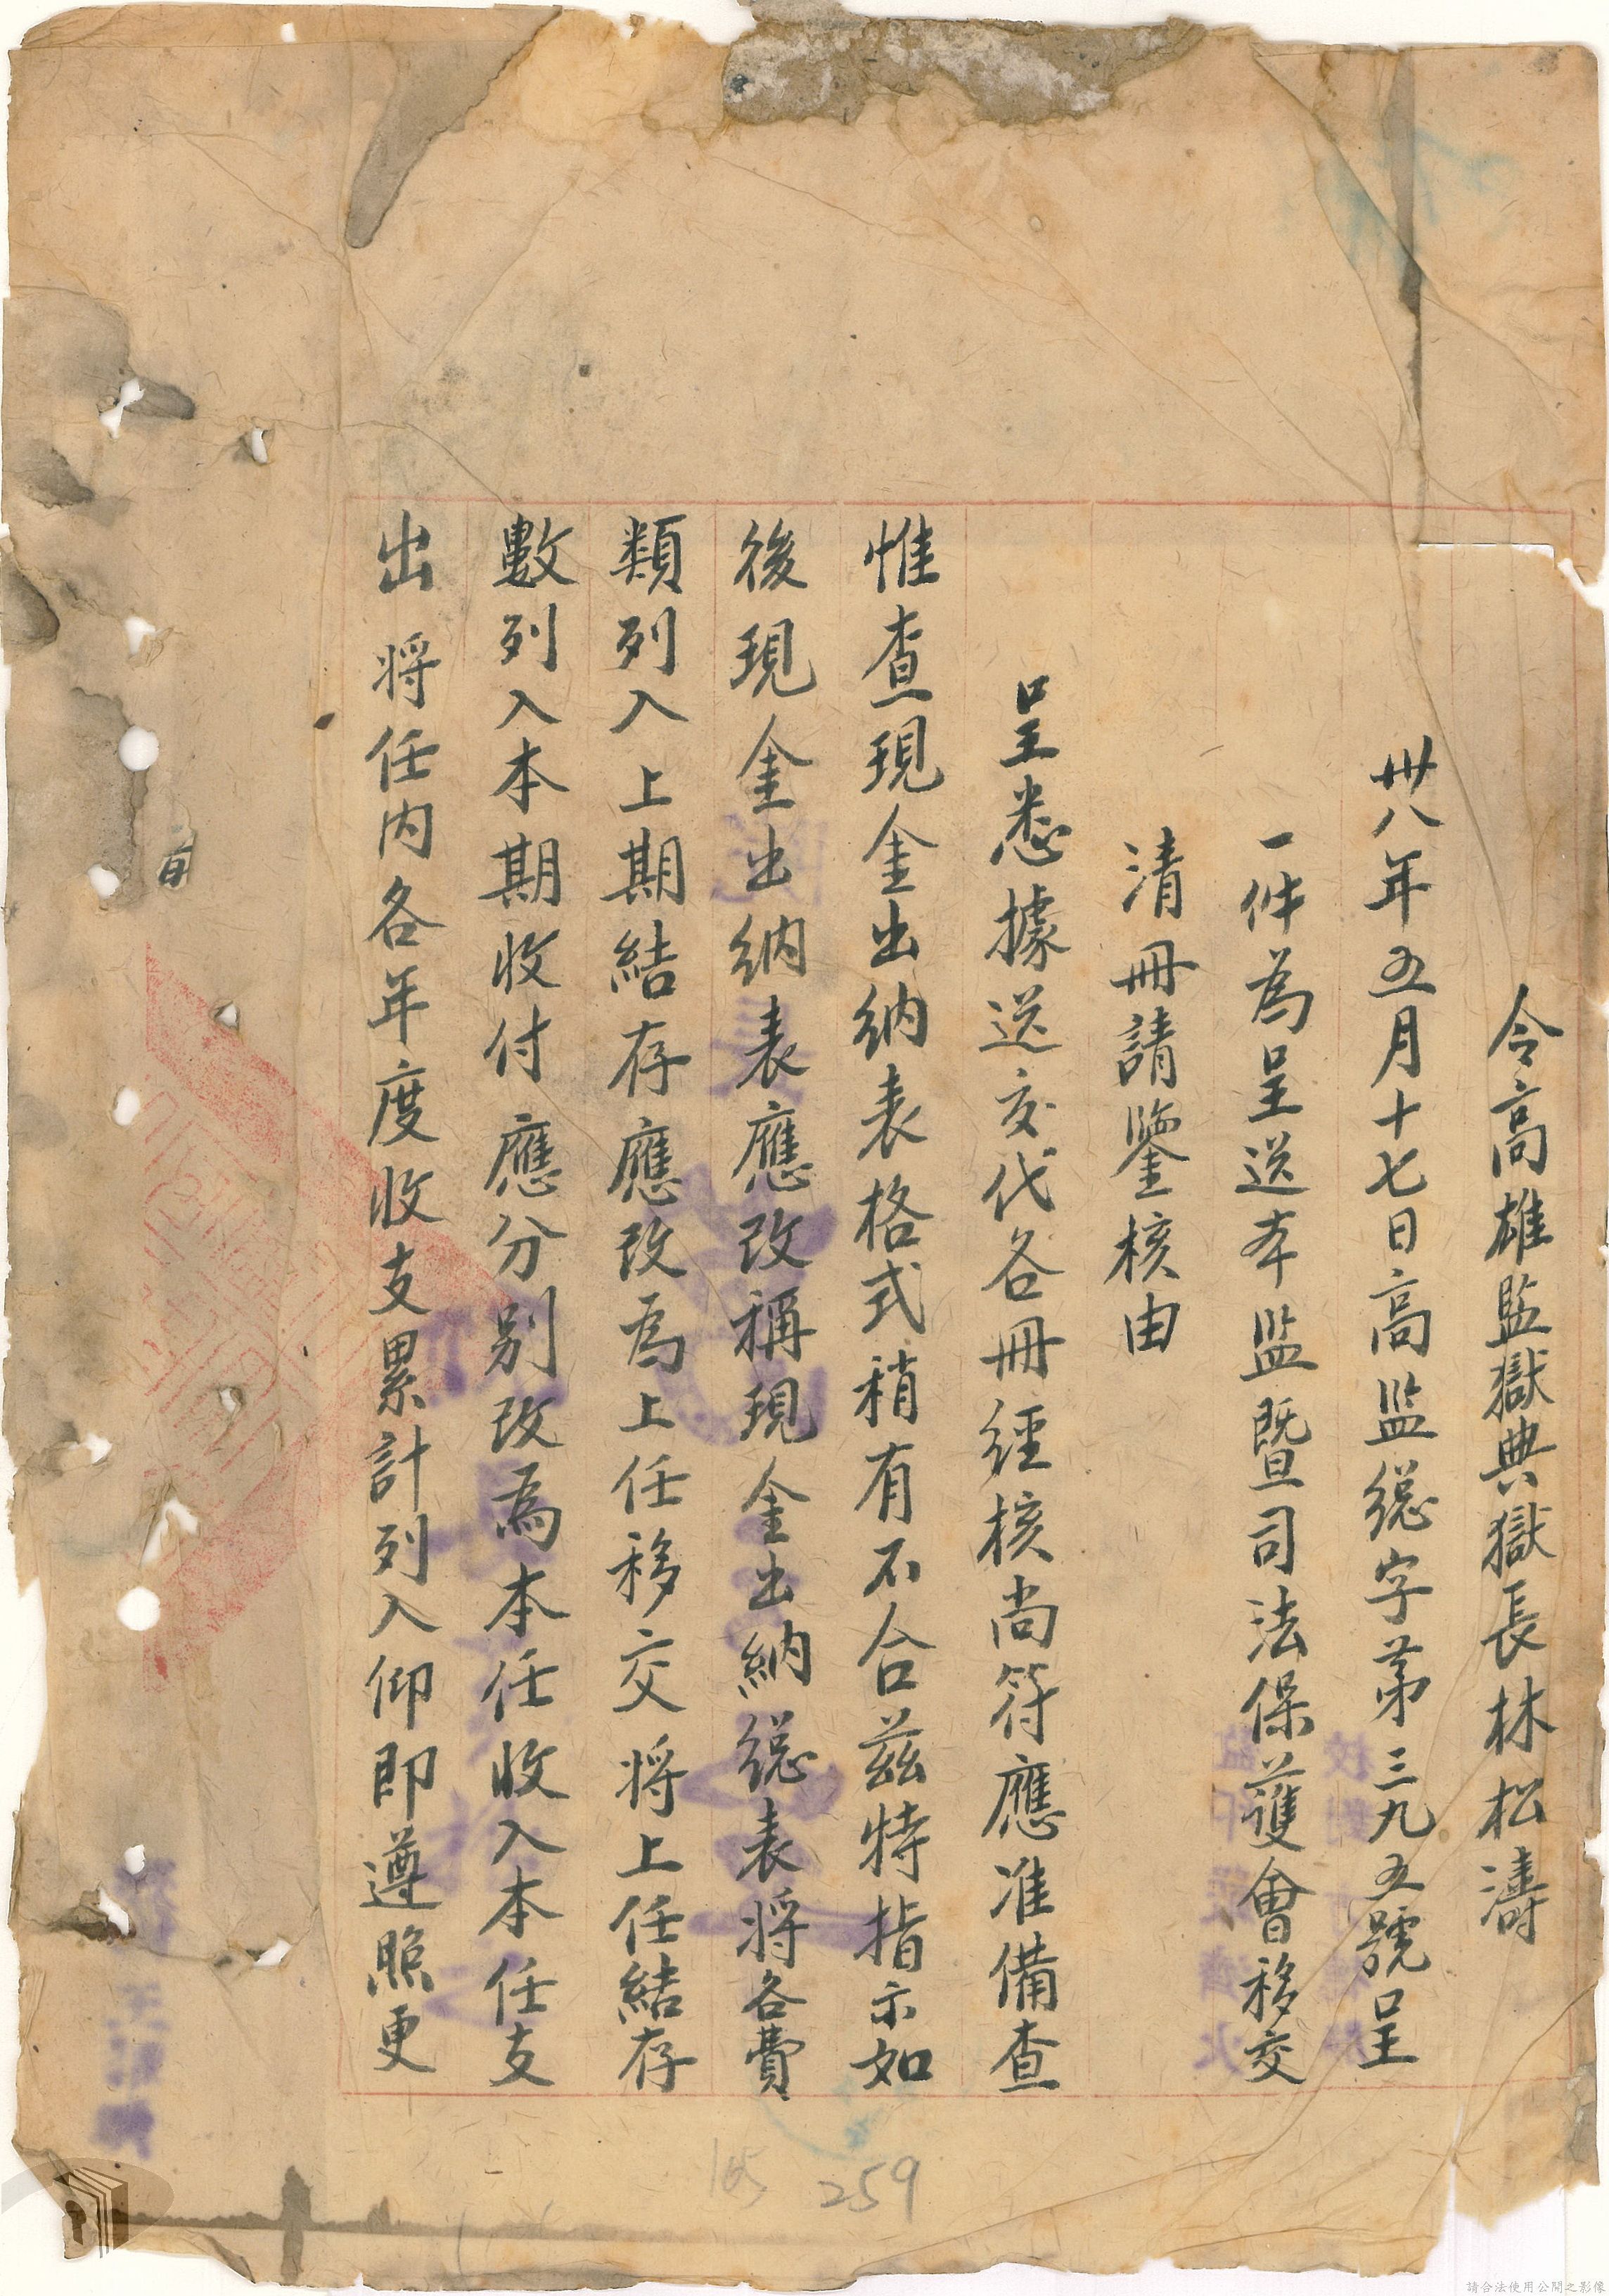 令高雄監獄典獄長林松濤
卅八年五月十七日高监総字第三九五號呈
一件為呈送本监暨司法保護會移交
清冊請鑒核由
呈悉據送交代各冊經核尚符應准備查
惟查現金出納表格式稍有不合茲特指示如
後現金出納表應改稱現金出納総表將各費
類列入上期結存應改為上任移交將上任結存
數列入本期收付應分別改為本任收入本任支
出將任内各年度收支累計列入仰即遵照更
165 259
請合法使用公開之影像